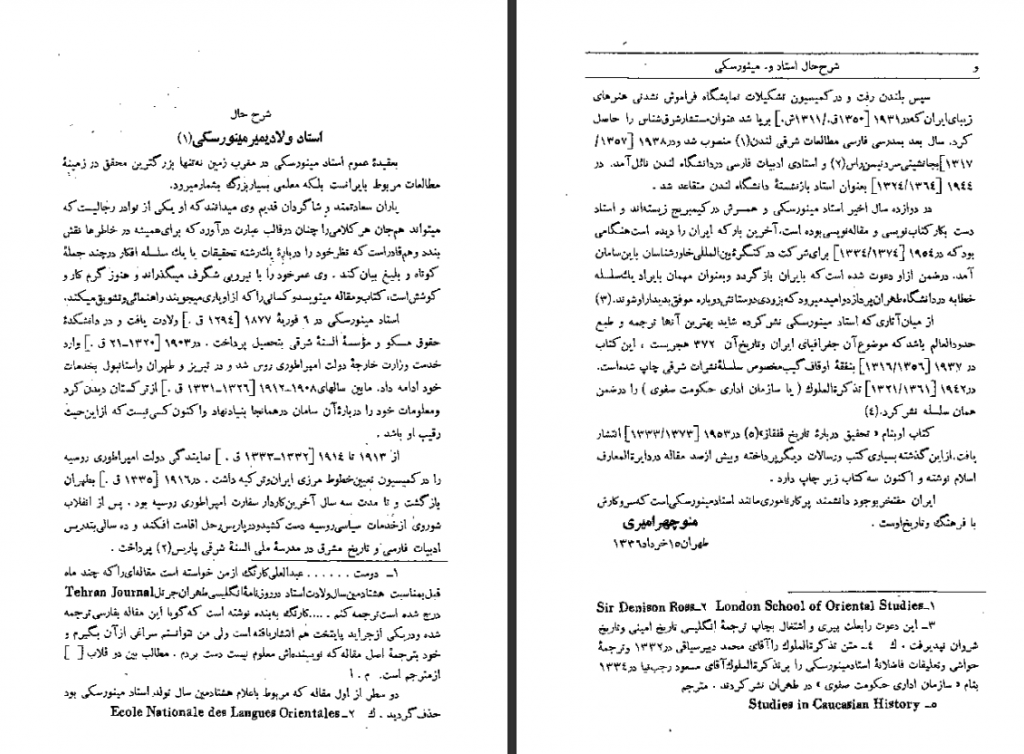 شرح حال
استاد ولادیمیر مینورسکی(۱)
بعقیدهٔ عموم استاد مینورسکی در مغرب زمین نه‌تنها بزرگترین محقق در زمینهٔ
مطالعات مربوط بایرانست بلکه معلمی بسیاربزرگ بشمارمیرود.
یاران سعادتمند و شاگردان قدیم وی میدانند که او یکی از نوادر رجالیست که
میتواند هم‌جان هر کلامی‌را چنان درقالب عبارت درآورد که برای همیشه در خاطرها نقش
بندد و هم قادراست که نظر خود را دربارهٔ یک‌رشته تحقیقات یا یک سلسله افکار درچند جملهٔ
کوتاه و بلیغ بیان کند . وی عمرخود را با نیرویی شگرف میگذراند و هنوز گرم کار و
کوشش‌است، کتاب‌و مقاله مینویسد و کسانی‌را که ازاویاری میجویند راهنمائی‌وتشویق‌میکند.
استاد مینورسکی در ۶ فوریهٔ ۱۸۷۷ [۱۲۹۴ ق .] ولادت یافت و در دانشکدهٔ
حقوق مسکو و مؤسسهٔ السنهٔ شرقی بتحصیل پرداخت . در۱۹۰۳ [۱۳۲۰–۲۱ ق .] وارد
خدمت وزارت خارجهٔ دولت امپراطوری روس شد و در تبریز و طهران واستانبول بخدمات
خود ادامه داد. مابین سالهای۱۹۰۸–۱۹۱۲ [۱۳۲۶–۱۳۳۱ ق .] ازترکستان دیدن‌کرد
ومعلومات خود را دربارهٔ آن سامان درهمانجا بنیادنهاد واکنون کسی نیست که ازاین‌حیث
رقیب او باشد .
از ۱۹۱۳ تا ۱۹۱۴ [۱۳۳۲–۱۳۳۳ ق . ] نمایندگی دولت امپراطوری روسیه
را درکمیسیون تعیین‌خطوط مرزی ایران‌وترکیه داشت . در۱۹۱۶ [۱۳۳۵ ق .] بطهران
بازگشت و تا مدت سه سال آخرین‌کاردار سفارت امپراطوری روسیه بود . پس از انقلاب
شوروی ازخدمات سیاسی‌روسیه دست کشیدودرپاریس‌رحل اقامت افکند و ده سالی‌بتدریس
ادبیات فارسی و تاریخ مشرق در مدرسهٔ ملی السنهٔ شرقی پاریس(۲) پرداخت .
۱– دوست . . . . . . عبدالعلی‌کارنگ ازمن خواسته است مقاله‌ای‌راکه چند ماه
قبل‌بمناسبت هشتادمین‌سال‌ولادت‌استاد درروزنامهٔ‌انگلیسی‌طهران‌جرنل Tehran Journal
درج شده است‌ترجمه‌کنم . ....کارنگ به‌بنده نوشته است که‌گویا این مقاله بفارسی‌ترجمه
شده ودریکی ازجراید پایتخت هم انتشاریافته است ولی من نتوانستم سراغی ازآن بگیرم و
خود بترجمهٔ اصل مقاله‌که نویسنده‌اش معلوم نیست دست بردم . مطالب بین دو قلاب [ ]
ازمترجم است. م . ا
دو سطر از اول مقاله که مربوط باعلام هشتادمین سال تولد استاد مینورسکی بود
حذف گردید . ك ۲– Ecole Nationale des Langues Orientales
و شرح‌حال استاد و- مینورسکی
سپس بلندن رفت و در کمیسیون تشکیلات نمایشگاه فراموش نشدنی هنرهای
زیبای‌ایران که‌در۱۹۳۱ [۱۳۵۰ق./۱۳۱۱ش.] برپا شد عنوان‌مستشارشرق‌شناس را حاصل
کرد. سال بعد بمدرسی فارسی مطالعات شرقی لندن(۱) منصوب شد ودر۱۹۳۸ [۱۳۵۷/
۱۳۱۷]بجانشینی‌سردنیس‌راس(۲) و استادی ادبیات فارسی دردانشگاه لندن نائل‌آمد. در
۱۹۴۴ [۱۳۲۴/۱۳۶۴] بعنوان استاد بازنشستهٔ دانشگاه لندن متقاعد شد .
در دوازده سال اخیر استاد مینورسکی و همسرش در کیمبریج زیسته‌اند و استاد
دست بکارکتاب‌نویسی و مقاله‌نویسی‌بوده است، آخرین بارکه ایران را دیده است‌هنگامی
بود که در۱۹۵۴ [۱۳۳۴/۱۳۷۴] برای‌شرکت در کنگرهٔ بین‌المللی خاورشناسان باین‌سامان
آمد. درضمن ازاو دعوت شده است‌که بایران بازگردد وبعنوان مهمان بایراد یک‌سلسله
خطابه دردانشگاه‌طهران‌بپردازدوامیدمیرودکه‌بزودی‌دوستانش‌دوباره موفق‌بدیداراوشوند.(۳)
از میان‌آثاری‌که استاد مینورسکی نشرکرده شاید بهترین آنها ترجمه و طبع
حدودالعالم باشدکه موضوع‌آن جغرافیای ایران وتاریخ‌آن ۳۷۲ هجریست ، این کتاب
در ۱۹۳۷ [۱۳۱۶/۱۳۵۶] بنفقهٔ اوقاف‌گیب‌مخصوص سلسلهٔ‌نشرات شرقی چاپ شده‌است.
در۱۹۴۲ [۱۳۲۱/۱۳۶۱] تذکرةالملوک ( یا سازمان اداری حکومت صفوی ) را درضمن
همان سلسله نشرکرد.(۴)
کتاب اوبنام « تحقیق دربارهٔ تاریخ قفقاز»(۵) در۱۹۵۳ [۱۳۳۳/۱۳۷۳] انتشار
یافت. ازاین‌گذشته بسیاری کتب ورسالات دیگرپرداخته وبیش ازصد مقاله دردایرةالمعارف
اسلام نوشته و اکنون سه کتاب زیر چاپ دارد .
ایران مفتخربوجود دانشمند پرکارناموری‌مانند استادمینورسکی‌است‌که‌سروکارش
با فرهنگ وتاریخ‌اوست .
منوچهرامیری
طهران‌۱۵خرداد۱۳۳۶
۱– London School of Oriental Studies ۲– Sir Denison Ross
۳– این دعوت رابعلت پیری و اشتغال بچاپ ترجمهٔ انگلیسی تاریخ امینی وتاریخ
شروان نپذیرفت . ك ۴– متن تذکرةالملوک راآقای محمد دبیرسیاقی در۱۳۳۲ وترجمهٔ
حواشی وتعلیقات فاضلانهٔ استادمینورسکی را برتذکرةالملوک‌آقای مسعود رجب‌نیا در۱۳۳۴
بنام « سازمان اداری حکومت صفوی » در طهران نشر کردند . مترجم
۵– Studies in Caucasian History